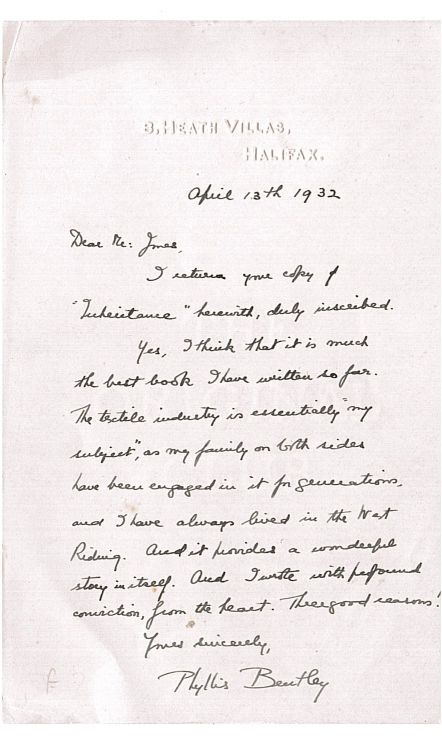 8, HEATH VILLAS,
HALIFAX.
April 13th 1932
Dear Mr: Jones,
I return your copy of
"Inheritance" herewith, duly inscribed.
Yes, I think that it is much
the best book I have written so far.
The textile industry is essentially "my
subject", as my family on both sides
have been engaged in it for generations,
and I have always lived in the West
Riding. And it provides a wonderful
story in itself. And I wrote with profound
conviction, from the heart. Three good reasons!
Yours sincerely,
Phyllis Bentley